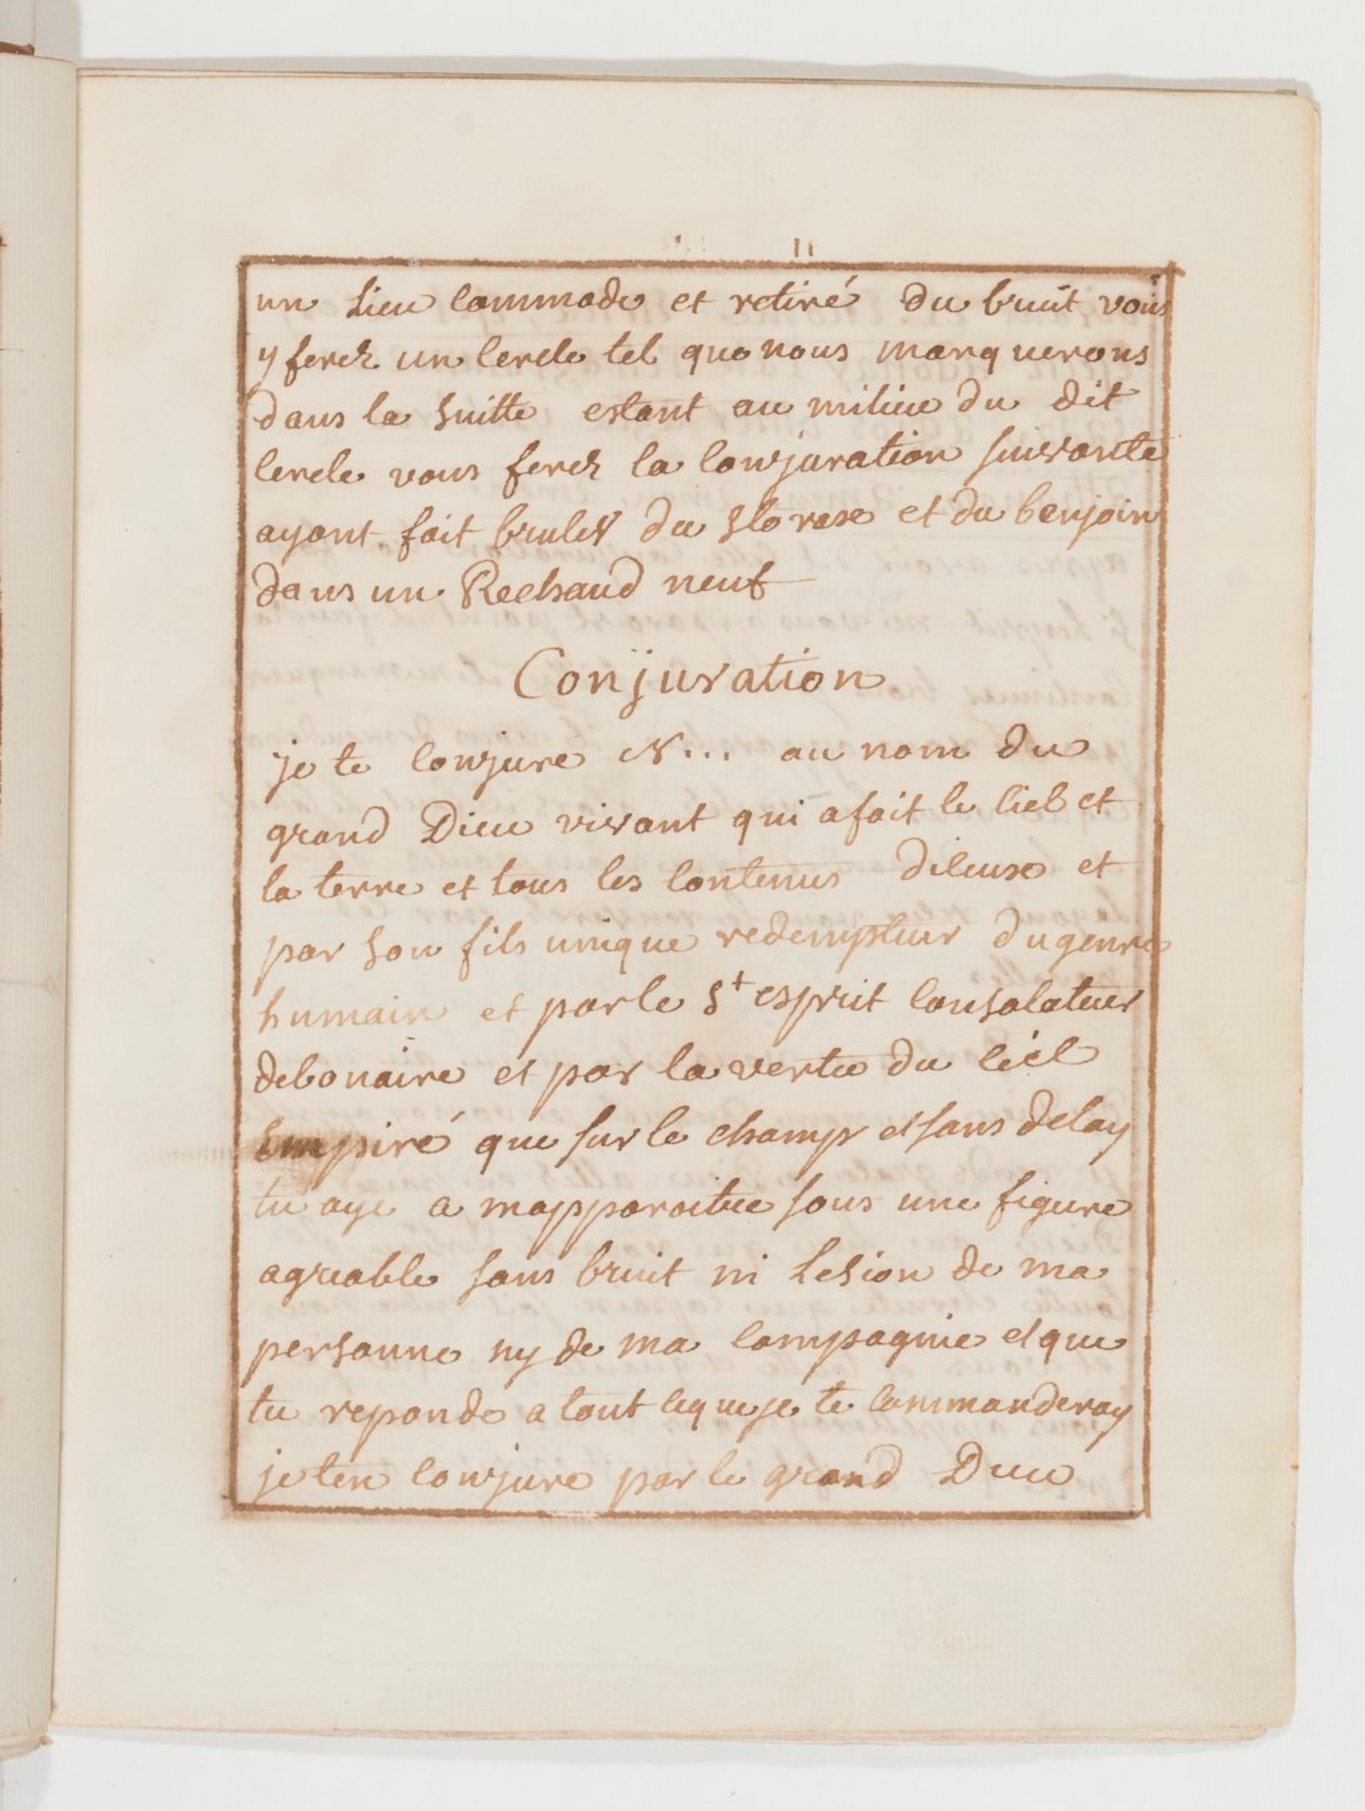 11
un Lieu commode et retiré du bruit vous
y ferez un cercle tel que nous marquerons
dans la suitte estant au milieu du dit
cercle vous ferez la conjuration suivante
ayant fait bruler du storax et du benjoin
dans un Rechaud neuf
Conjuration
je te conjure N... au nom du
grand Dieu vivant qui a fait le ciel et
la terre et tous les contenus diceux et
par son fils unique redempteur du genre
humain et par le St esprit consolateur
debonaire et par la vertu du ciel
Empiré que sur le champ et sans delay
tu aye a mapparoitre sous une figure
agreable sans bruit ni Lesion de ma
personne ny de ma compagnie et que
tu reponde a tout ceque je te commanderay
je ten conjure par le grand Dieu